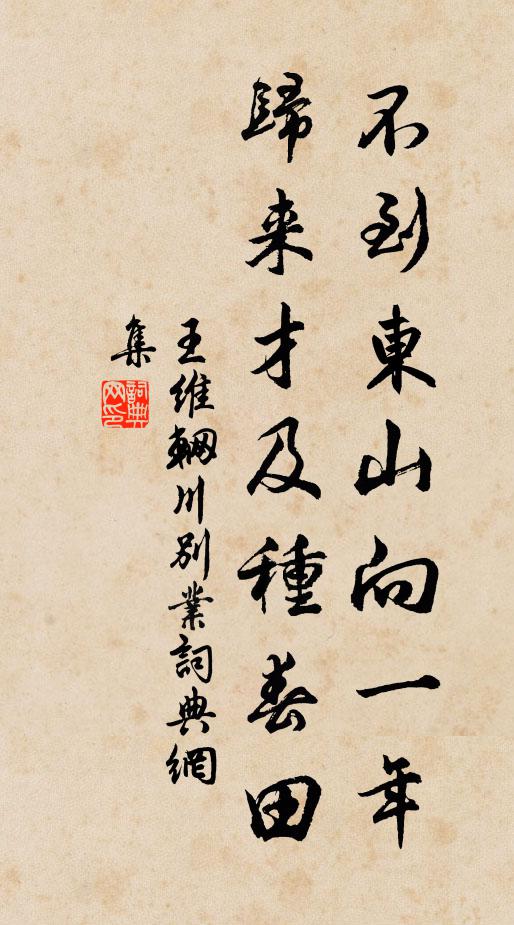 不到東山向一年
歸来才及種春田
王維輞川别業詞典網
集
詞典网印